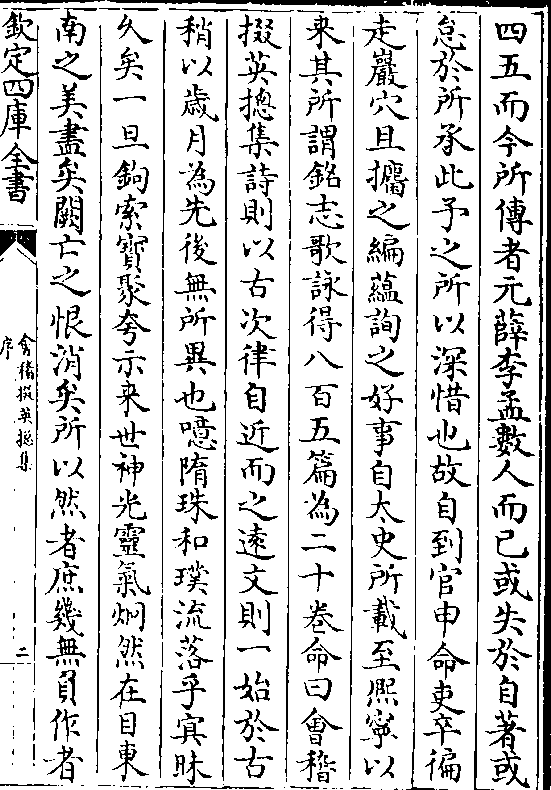 四五而今所傳者元薛李孟數人而已或失於自著或
怠於所承此予之所以深惜也故自到官申命吏卒徧
走巖穴且攟之編蘊詢之好事自太史所載至熈寧以
来其所謂銘志歌詠得八百五篇為二十卷命曰會稽
掇英揔集詩則以古次律自近而之逺文則一始於古
稍以歳月為先後無所異也噫隋珠和璞流落乎冥昧
乆矣一旦鉤索寳聚夸示来世神光靈氣炯然在目東
南之美盡矣闕亡之恨消矣所以然者庶幾無負作者
欽定四庫全書
會稽掇英揔集
序
二